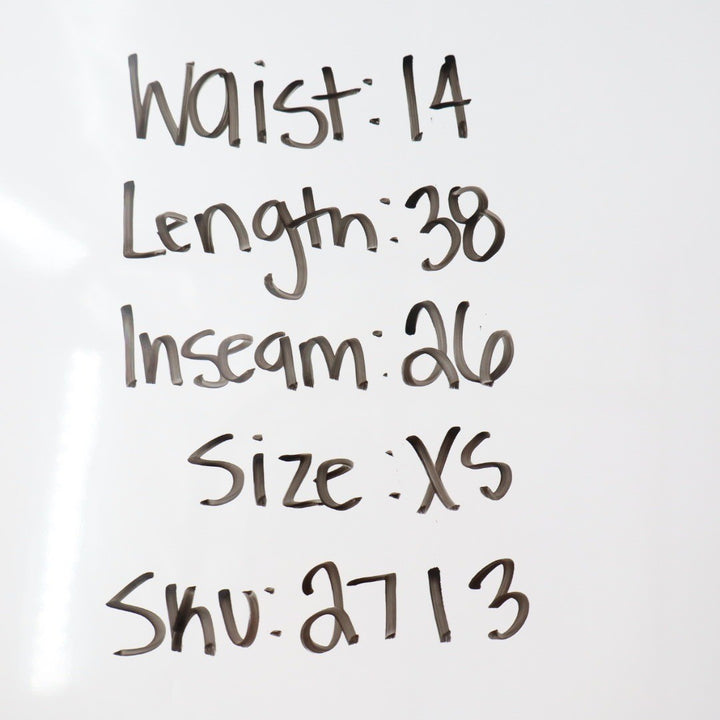 Waist: 14
Length: 38
Inseam: 26
Size: XS
Sku: 2713